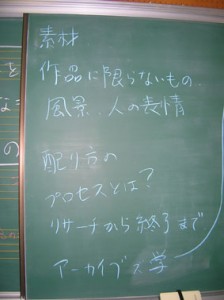 素材
作品に限らないもの
風景、人の表情
配り方の
プロセスとは?
リサーチから終了まで
アーカイブス学
を
な
の